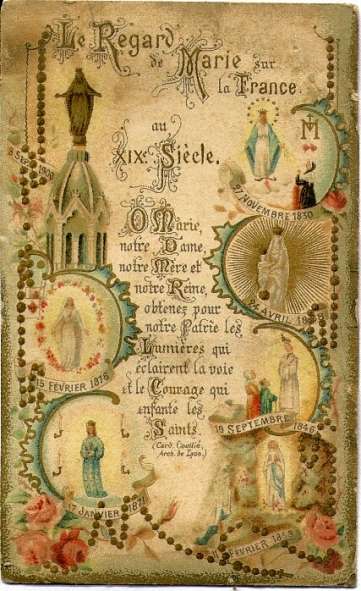 Le Regard
de Marie sur
la France.
au
XIXe Siècle.
O Marie,
notre Dame,
notre Mère et
notre Reine,
obtenez pour
notre Patrie les
Lumières qui
éclairent la voie
et le Courage qui
enfante les
Saints.
(Card. Coullié,
Arch. de Lyon.)
27 NOVEMBRE 1830
AVRIL
19 SEPTEMBRE 1846
FÉVRIER
15 FÉVRIER 1876
17 JANVIER 1871
8 SEPT.